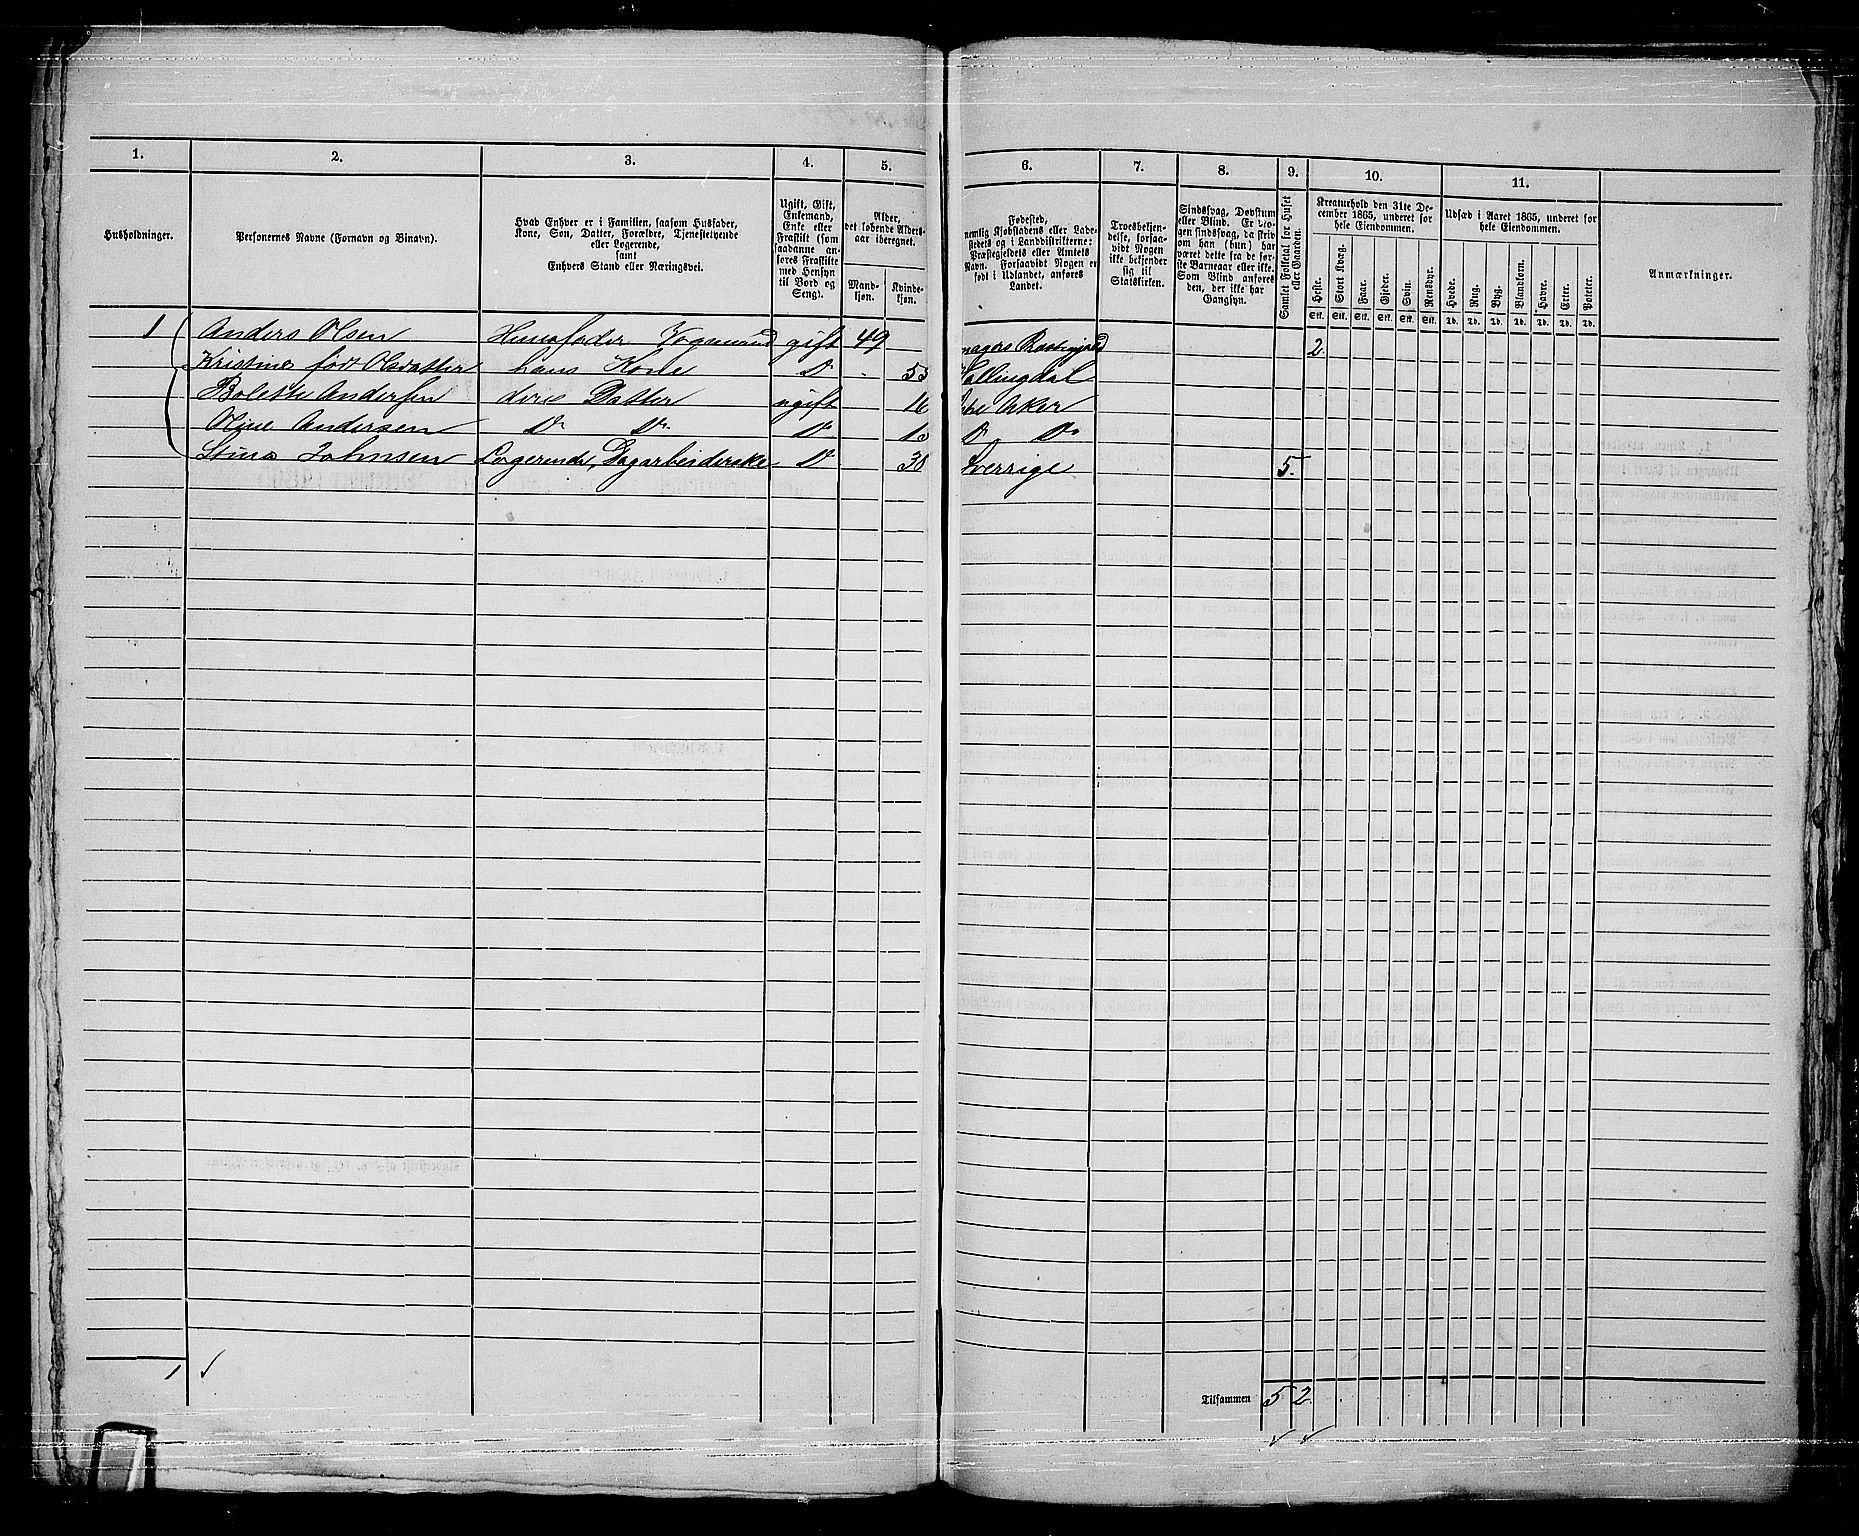 1. 2. 3. 4. 5. 6. 7. 8. 9. 10. 11.
Husholdninger.
Personernes Navne (Fornavn og Binavn).
Hvad Enhver er i Familien, saasom Husfader,
Kone, Søn, Datter, Forældre, Tjenestetyende
eller Logerende,
samt
Enhvers Stand eller Næringsvei.
Ugift, Gift,
Enkemand,
Enke eller
Fraskilt (som
saadanne an-
føres Fraskilte
med Hensyn
til Bord og
Seng).
Alder,
det løbende Alders-
aar iberegnet.
Mand-
kjøn.
Kvinde-
kjøn.
Fødested,
nemlig Kjøbstadens eller Lade-
stedets og i Landdistrikterne:
Præstegjeldets eller Amtets
Navn. Forsaavidt Nogen er
født i Udlandet, anføres
Landet.
Troesbekjen-
delse, forsaa-
vidt Nogen
ikke bekjender
sig til
Statskirken.
Sindssvag, Døvstum
eller Blind. Er No-
gen sindssvag, da skriv
om han (hun) har
været dette fra de før-
ste Barneaar eller ikke.
Som Blind anføres
den, der ikke har
Gangsyn.
Samlet Folketal for Huset
eller Gaarden.
Kreaturhold den 31te De-
cember 1865, underet for
hele Eiendommen.
Heste. Stort Kvæg. Faar. Gjeder. Sviin. Rensdyr.
Stk. Stk. Stk. Stk. Stk. Stk.
Udsæd i Aaret 1865, underet for
hele Eiendommen.
Hvede. Rug. Byg. Blandkorn. Havre. Erter. Poteter.
Td. Td. Td. Td. Td. Td. Td.
Anmærkninger.
1 Anders Olsen Huusfader Vognmand gift 49 2
Kristine født Olsdatter hans Kone Do 53 Hallingdal
Bolette Andersen deres Datter ugift 16 Aker
Oline Andersen Do Do Do 13 Do Do
Stina Johnsen Logerende, Dagarbeiderske Do 38 Sverrige 5.
1
Tilsammen 5 2